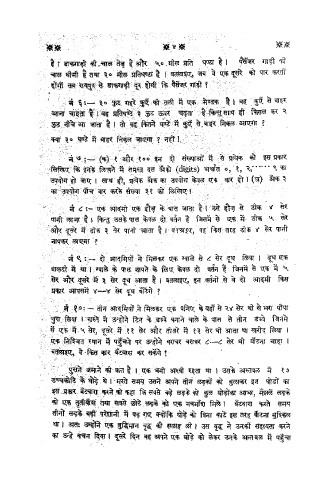 ४
है। डाकगाड़ी की चाल तेज़ है और ५० मील प्रति घण्टा है। पैसेंजर गाड़ी की
चाल धीमी है तथा ३० मील प्रतिघण्टा है। बतलाइए, जब वे एक दूसरे को पार करती
होंगी तब रायपुर से डाकगाड़ी दूर होगी कि पैसेंजर गाड़ी?
नं ६:— ३० फुट गहरे कुएँ की तली में एक मेण्डक है। वह कुएँ से बाहर
आना चाहता है। वह प्रतिघण्टे ३ फुट ऊपर चढ़ता है किन्तु साथ ही फिसल कर २
फुट नीचे आ जाता है। तो वह कितने घण्टे में कुएँ से बाहर निकल आएगा?
क्या ३० घण्टे में बाहर निकल जाएगा? नहीं।
नं ७:— (क) १ और १०० इन दो संख्याओं में से प्रत्येक को इस प्रकार
लिखिए कि इनके लिखने में समस्त दस अंकों (digits) अर्थात् ०, १, २, ९ का
उपयोग हो जाए। साथ ही, प्रत्येक अंक का उपयोग केवल एक बार हो। (ख) अंक २
का उपयोग पाँच बार करके संख्या ३१ को लिखिए।
नं ८:— एक आदमी एक हौज़ के पास जाता है। उसे हौज़ से ठीक ४ सेर
पानी लाना है। किन्तु उसके पास केवल दो बर्तन हैं जिनमें से एक में ठीक ५ सेर
और दूसरे में ठीक ३ सेर पानी आता है। बतलाइए, वह किस तरह ठीक ४ सेर पानी
नापकर लाएगा?
नं ९:— दो आदमियों ने मिलकर एक ग्वाले से ८ सेर दूध लिया। दूध एक
बालटी में था। ग्वाले के पास नापने के लिए केवल दो बर्तन हैं जिनमें से एक में ५
सेर और दूसरे में ३ सेर दूध आता है। बतलाइए, इन बर्तनों से वे दो आदमी किस
प्रकार आपसमें ४—४ सेर दूध बाँटेंगे?
नं १०:— तीन आदमियों ने मिलकर एक बनिए के यहाँ से २४ सेर घी से भरा पीपा
चुरा लिया। रास्ते में उन्होंने टिन के डब्बे बनाने वाले के पास से तीन डब्बे जिनमें
से एक में ५ सेर, दूसरे में ११ सेर और तीसरे में १३ सेर घी आता था खरीद लिया।
एक निश्चित स्थान में पहुँचने पर उन्होंने बराबर बराबर ८—८ सेर घी बाँटना चाहा।
बतलाइए, वे किस कार बँटवारा कर सकेंगे?
पुराने जमाने की बात है। एक धनी आदमी रहता था। उसके अस्तबल में १७
उच्चकोटि के घोड़े थे। मरते समय उसने अपने तीन लड़कों को बुलाकर इन घोड़ों का
इस प्रकार बँटवारा करने को कहा कि सबसे बड़े लड़के को कुल घोड़ोंका आधा, मंझले लड़के
को एक तृतीयांश तथा सबसे छोटे लड़के को एक नवमांश मिले। बँटवारा करते समय
तीनों लड़के बड़ी परेशानी में पड़ गए क्योंकि घोड़े को बिना काटे इस तरह बँटना मुश्किल
था। अतः उन्होंने एक बुद्धिमान वृद्ध की सलाह ली। उस वृद्ध ने उनकी सहायता करने
का उन्हें वचन दिया। दूसरे दिन वह अपने एक घोड़े को लेकर उनके अस्तबल में पहुँचा